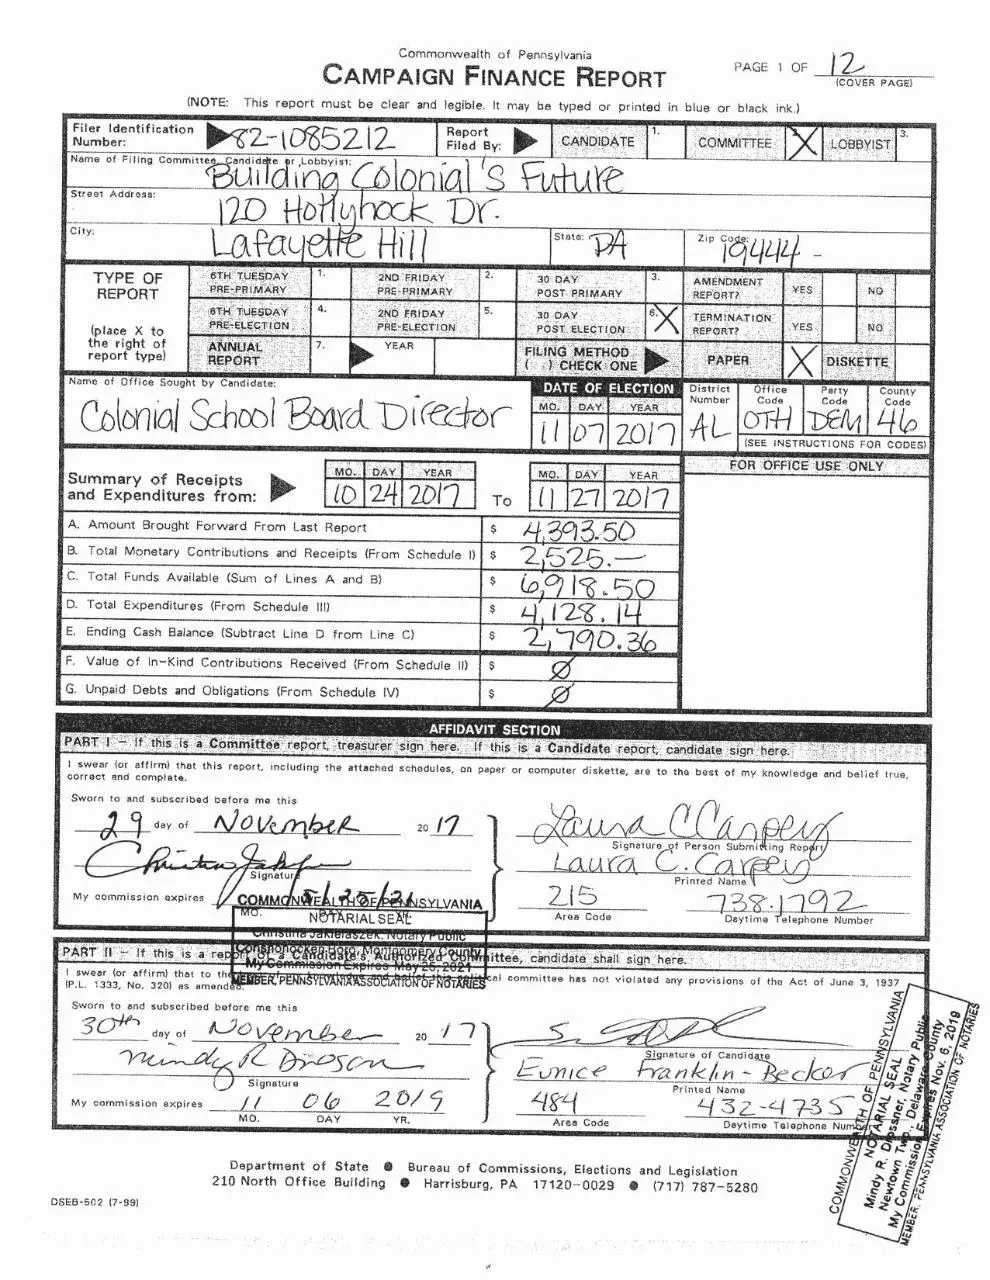 Commonwealth of Pennsylvania
CAMPAIGN FINANCE REPORT
PAGE 1 OF 12
(COVER PAGE)
(NOTE: This report must be clear and legible. It may be typed or printed in blue or black ink.)
Filer Identification Number: 82-1085212 Report Filed By: CANDIDATE 1. COMMITTEE X LOBBYIST 3.
Name of Filing Committee, Candidate or Lobbyist:
Building Colonial's Future
Street Address:
120 Hollyhock Dr.
City: Lafayette Hill State: PA Zip Code: 19444 -
TYPE OF REPORT
(place X to the right of report type)
6TH TUESDAY PRE-PRIMARY 1. 2ND FRIDAY PRE-PRIMARY 2. 30 DAY POST PRIMARY 3. AMENDMENT REPORT? YES NO
6TH TUESDAY PRE-ELECTION 4. 2ND FRIDAY PRE-ELECTION 5. 30 DAY POST ELECTION 6. X TERMINATION REPORT? YES NO
ANNUAL REPORT 7. YEAR FILING METHOD ( ) CHECK ONE PAPER X DISKETTE
Name of Office Sought by Candidate:
Colonial School Board Director
DATE OF ELECTION
MO. DAY YEAR
11 07 2017
District Number AL
Office Code OTH
Party Code DEM
County Code 46
(SEE INSTRUCTIONS FOR CODES)
Summary of Receipts and Expenditures from:
MO. DAY YEAR
10 24 2017
To
MO. DAY YEAR
11 27 2017
FOR OFFICE USE ONLY
A. Amount Brought Forward From Last Report $ 4,393.50
B. Total Monetary Contributions and Receipts (From Schedule I) $ 2,525.—
C. Total Funds Available (Sum of Lines A and B) $ 6,918.50
D. Total Expenditures (From Schedule III) $ 4,128.14
E. Ending Cash Balance (Subtract Line D from Line C) $ 2,790.36
F. Value of In-Kind Contributions Received (From Schedule II) $ Ø
G. Unpaid Debts and Obligations (From Schedule IV) $ Ø
AFFIDAVIT SECTION
PART I - If this is a Committee report, treasurer sign here. If this is a Candidate report, candidate sign here.
I swear (or affirm) that this report, including the attached schedules, on paper or computer diskette, are to the best of my knowledge and belief true,
correct and complete.
Sworn to and subscribed before me this
29 day of November 20 17
Signature
My commission expires 5/25/21
MO.
Laura C Carpey
Signature of Person Submitting Report
Laura C. Carpey
Printed Name
215 738.1792
Area Code Daytime Telephone Number
COMMONWEALTH OF PENNSYLVANIA
NOTARIAL SEAL
Christina Jakielaszek, Notary Public
Conshohocken Boro, Montgomery County
My Commission Expires May 25, 2021
MEMBER, PENNSYLVANIA ASSOCIATION OF NOTARIES
PART II - If this is a report of a Candidate's Authorized Committee, candidate shall sign here.
I swear (or affirm) that to the best of my knowledge and belief this political committee has not violated any provisions of the Act of June 3, 1937
(P.L. 1333, No. 320) as amended.
Sworn to and subscribed before me this
30th day of November 20 17
Mindy R Drossner
Signature
My commission expires 11 06 2019
MO. DAY YR.
Signature of Candidate
Eunice Franklin-Becker
Printed Name
484 432-4735
Area Code Daytime Telephone Number
COMMONWEALTH OF PENNSYLVANIA
NOTARIAL SEAL
Mindy R. Drossner, Notary Public
Newtown Twp., Delaware County
My Commission Expires Nov. 6, 2019
MEMBER, PENNSYLVANIA ASSOCIATION OF NOTARIES
Department of State ● Bureau of Commissions, Elections and Legislation
210 North Office Building ● Harrisburg, PA 17120-0029 ● (717) 787-5280
DSEB-502 (7-99)